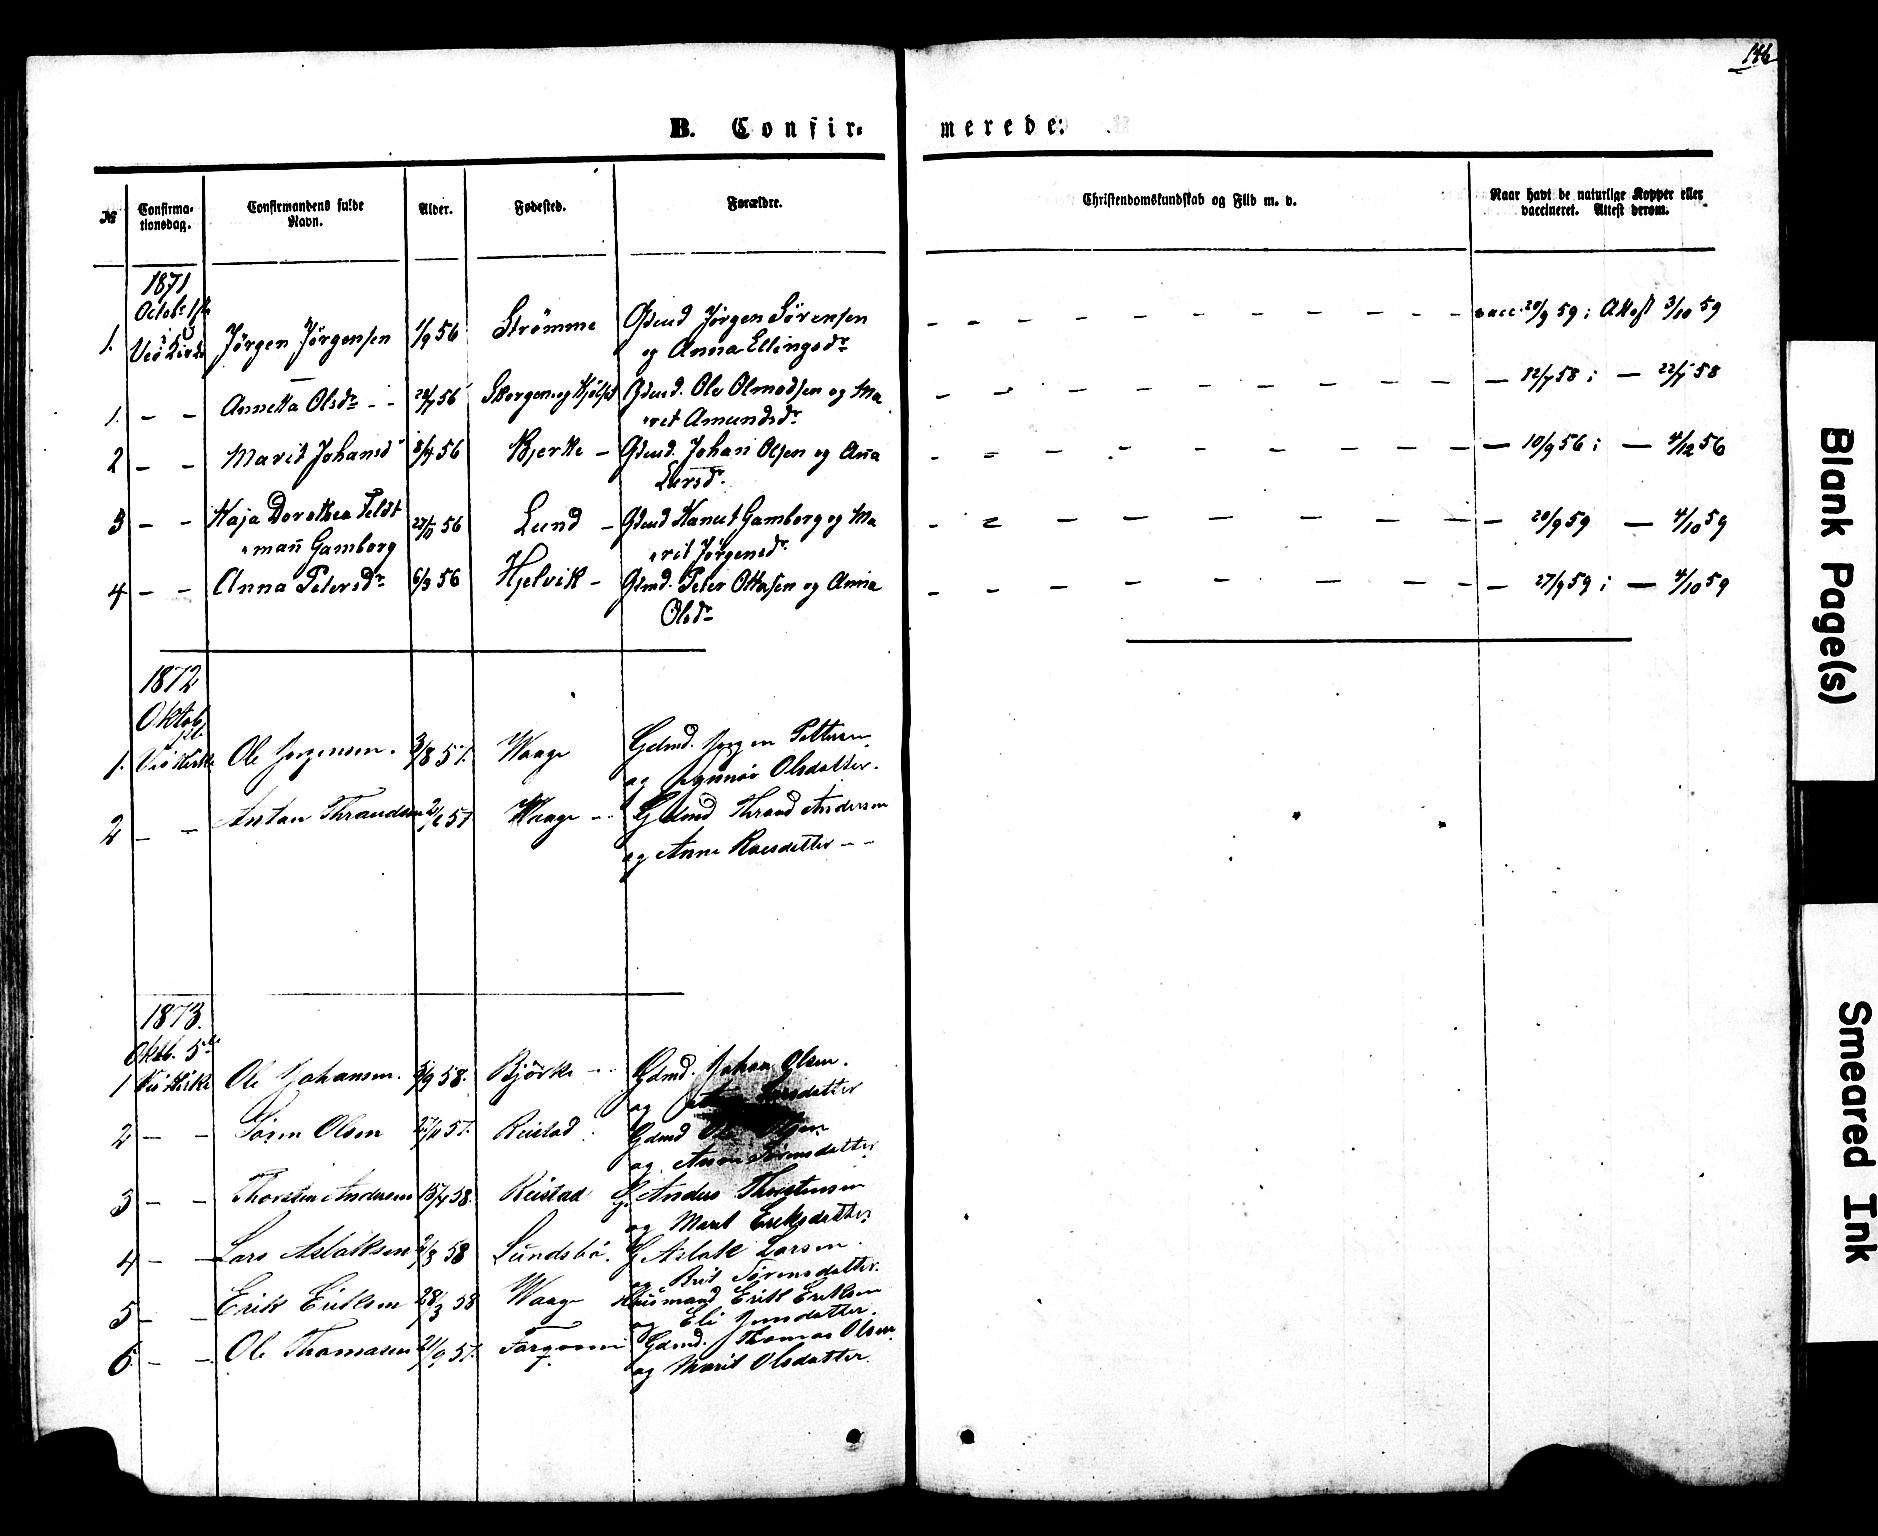 146
B. Confir- merede:
№ Confirma- Confirmandens fulde Alder. Fødested. Forældre. Christendomskundskab og Flid m. v. Naar havt de naturlige Kopper eller
tionsdag. Navn. vaccineret. Attest derom.
1871
Octob. 1ste
1. Veø Kirke Jørgen Jørgensen 1/9 56 Strømme Gdmd Jørgen Sörensen
og Anna Ellingsdr
vacc. 20/9 59; Attest 3/10 59
1. - - Annetta Olsdr - - Gdmd. Ole Olmodsen og Ma
rit Amundsdr
- 12/7 58; - 22/7 58
2 - - Marit Johansdr 8/4 56 Bjerke - Gdmd. Johan Olsen og Ana
Larsdr
- 10/9 56; - 4/12 56
3 - - Kaja Dorothea Feldt
man Gamborg 56 Lund - Gdmd Kanut Gamborg og Ma
rit Jørgensdr
- 20/9 59 - 4/10 59
4 - - Anna Petersdr 6/9 56 Hjelvik - Gdmd. Peter Ottosen og Anna
Olsdr
- 27/9 59; - 4/10 59
1872
Oktob.
1. Veö Kirke Ole Jørgensen. 3/8 57. Waage Gdmd. Jørgen Pettersen
og Olsdatter.
2 - - Antan Thrandsen 57 Waage - - Gdmd Thrand Andersen
og Anne - -
1873.
Oktb. 5te
1 Veö Kirke Ole Johansen. 58. Björke - - Gdmd. Johan Olsen.
og Larsdatter
2 - - Sören Olsen 57. Reistad Gdmd
og Anne Sørensdatter
3 - - Thorsten Andersen 15/4 58. Reistad G. Anders Thorstensen
og Marit Eriksdatter
4 - - Lars Aslaksen 58 Sundsbö. G Aslak Larsen.
og Brit Sørensdatter.
5 - - Erik Eriksen 28/3 58 Waage Husmand Erik Eriksen
og Eli Jensdatter.
6. - - Ole Thomasen 21/9 57. Gdmd. Thomas Olsen.
og Marit Olsdatter.
Blank Page(s)
Smeared Ink